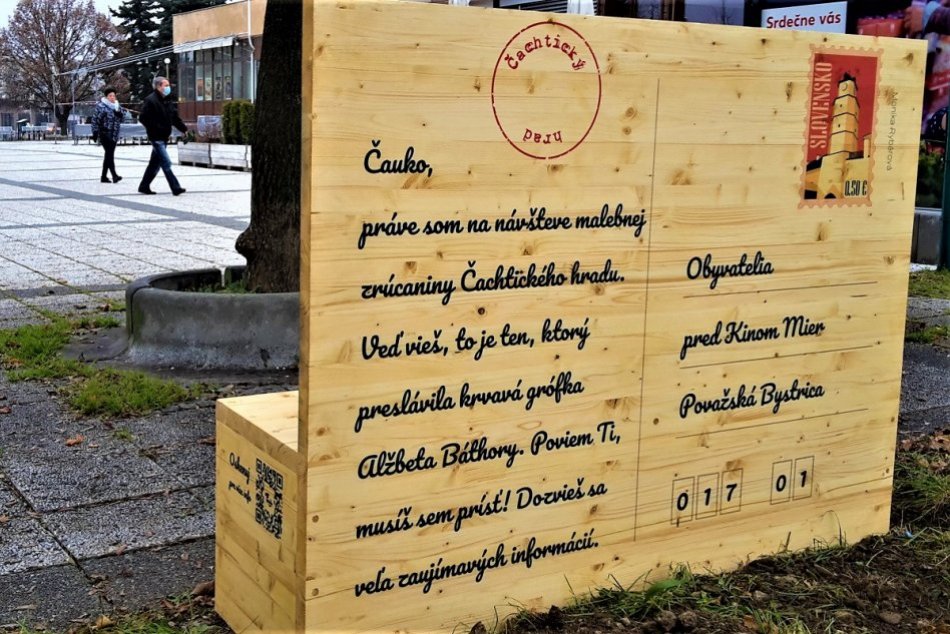 Srdečne vás
Čachtický
hrad
SLOVENSKO
0.50 €
Monika Rybárová
Čauko,
práve som na návšteve malebnej
zrúcaniny Čachtického hradu.
Veď vieš, to je ten, ktorý
preslávila krvavá grófka
Alžbeta Báthory. Poviem Ti,
musíš sem prísť! Dozvieš sa
veľa zaujímavých informácií.
Obyvatelia
pred Kinom Mier
Považská Bystrica
017 01
Oskenuj
pre viac info